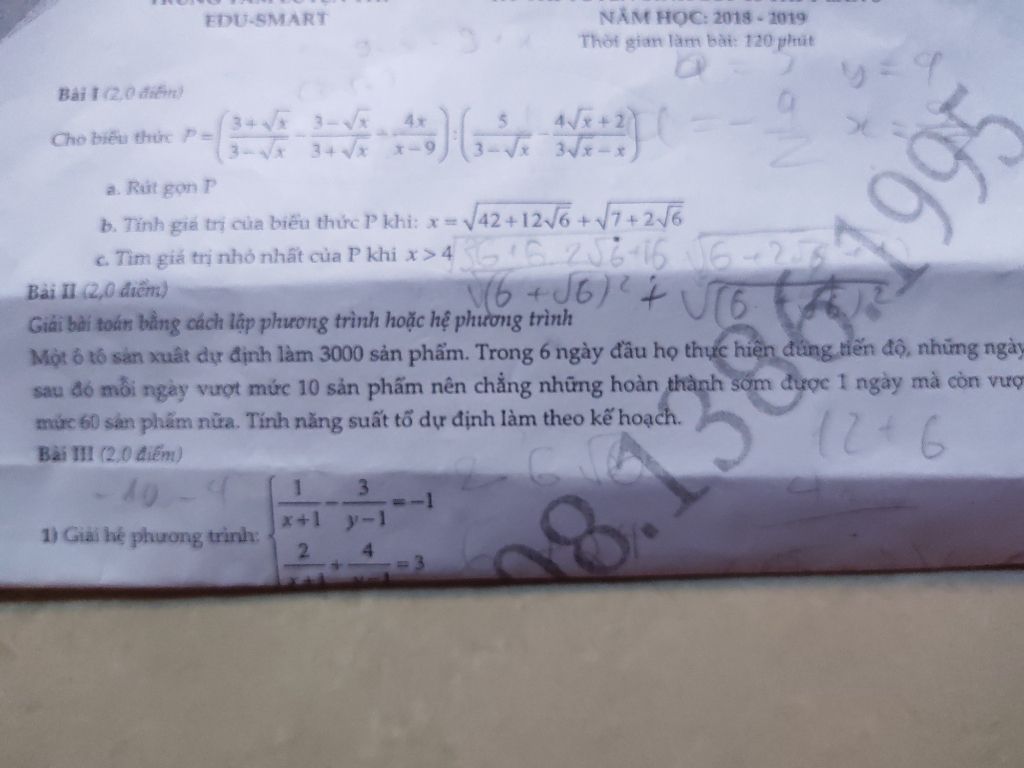 EDU-SMART
NĂM HỌC: 2018 - 2019
Thời gian làm bài: 120 phút
Bài I (2,0 điểm)
Cho biểu thức P = ((3+√x)/(3−√x) − (3−√x)/(3+√x) − 4x/(x−9)) : (5/(3−√x) − (4√x+2)/(3√x−x))
a. Rút gọn P
b. Tính giá trị của biểu thức P khi: x = √(42+12√6) + √(7+2√6)
c. Tìm giá trị nhỏ nhất của P khi x > 4
√(6+√6)² +
Bài II (2,0 điểm)
Giải bài toán bằng cách lập phương trình hoặc hệ phương trình
Một ô tô sản xuất dự định làm 3000 sản phẩm. Trong 6 ngày đầu họ thực hiện đúng tiến độ, những ngày
sau đó mỗi ngày vượt mức 10 sản phẩm nên chẳng những hoàn thành sớm được 1 ngày mà còn vượt
mức 60 sản phẩm nữa. Tính năng suất tổ dự định làm theo kế hoạch.
12 + 6
Bài III (2,0 điểm)
1) Giải hệ phương trình: { 1/(x+1) − 3/(y−1) = −1
2/(x+1) + 4/(y−1) = 3
98.1386.1995